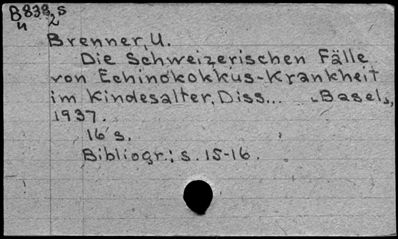 B838,s
u 2
Brenner, U.
Die Schweizerischen Fälle
von Echinokokkus-Krankheit
im Kindesalter, Diss... „Basel„,
1937.
16 s.
Bibliogr.: s. 15-16.